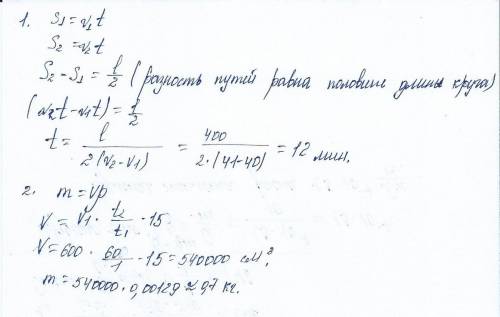 1. S₁ = v₁t
S₂ = v₂t
S₂ - S₁ = l/2 (разность путей равна половине длины круга)
(v₂t - v₁t) = l/2
t = l / 2(v₂ - v₁) = 400 / 2·(41-40) = 12 мин.
2. m = Vρ
V = V₁ · t₂/t₁ · 15
V = 600 · 60/1 · 15 = 540000 см³,
m = 540000 · 0,00129 ≈ 97 кг.